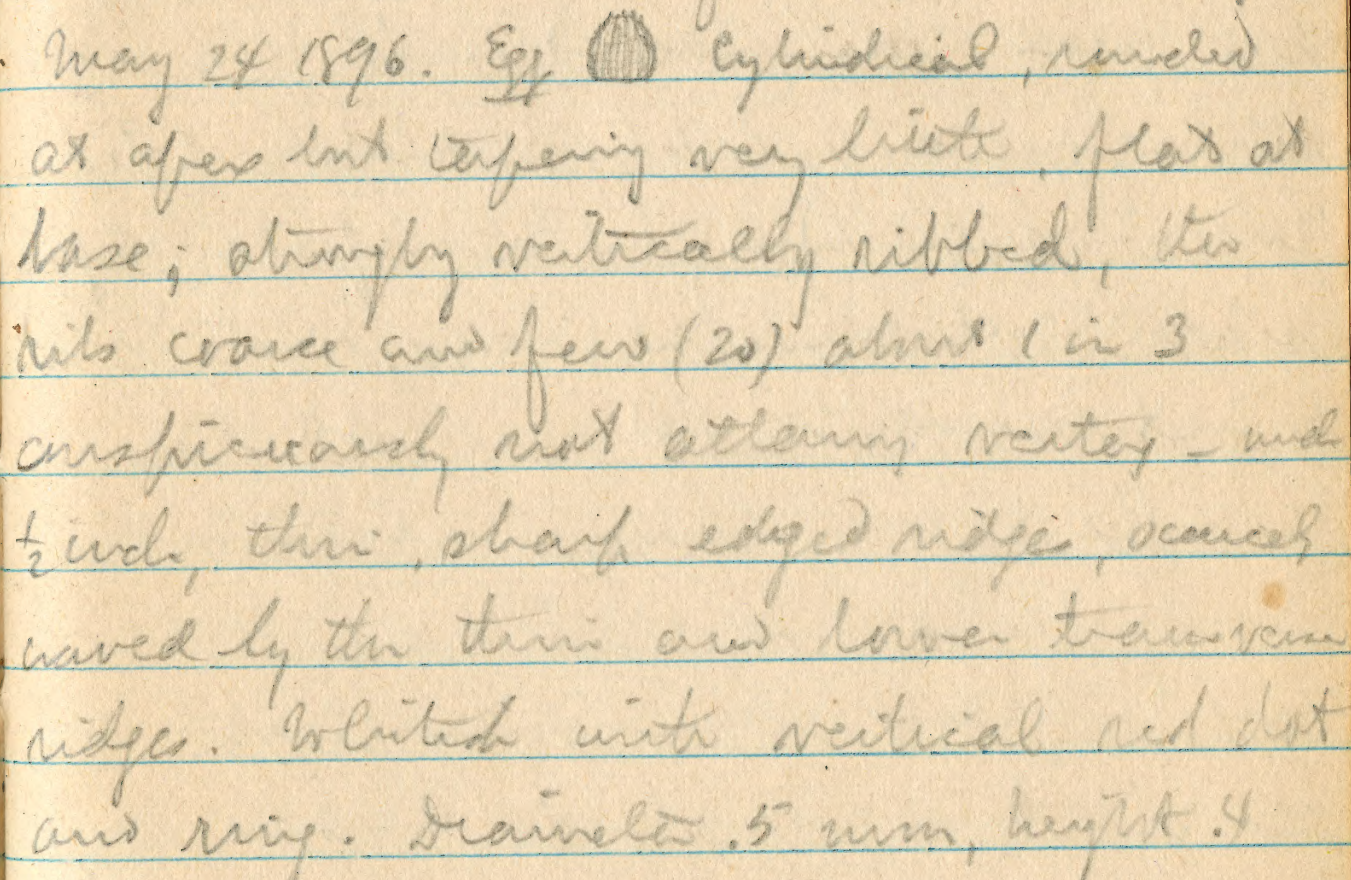 May 24 1896. Egg Cylindrical, rounded
at apex but tapering very little, flat at
base; strongly vertically ribbed, the
ribs coarse and few (20) about 1 in 3
conspicuously not attaining vertex –
thin, sharp edged ridges, scarcely
waved by the thin and lower transverse
ridges. Whitish with vertical red dot
and ring. Diameter .5 mm, height .4